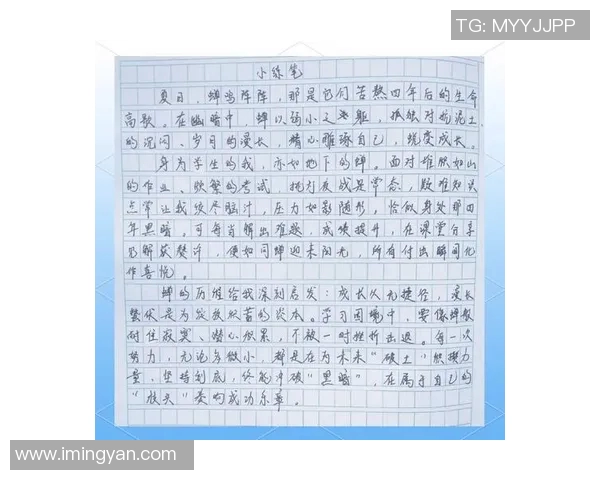 TG: MYYJJPP
小练笔
夏日，蝉鸣阵阵，那是它们苦熬四年后的生命
高歌。在幽暗中，蝉以弱小之躯，孤独对抗泥土
的沉闷、岁月的漫长，精心雕琢自己，蜕变成长。
身为学生的我，亦如地下的蝉。面对堆积如山
的作业、频繁的考试，挑灯夜战是常态，疑难知识
点常让我绞尽脑汁，压力如影随形，恰似身处那四
年黑暗。可每当解出难题，成绩提升，在课堂分享
见解获赞许，便如同蝉迎来阳光，所有付出瞬间化
作喜悦。
蝉的历难给我深刻启发：成长从无捷径，漫长
蛰伏是为绽放积蓄的资本。学习困境中，要像蝉般
耐住寂寞、潜心积累，不被一时挫折击退。每一次
努力，无论多微小，都是在为未来“破土”积攒力
量，坚持到底，终能冲破“黑暗”，在属于自己的
“枝头”奏响成功乐章。
www.imingyan.com